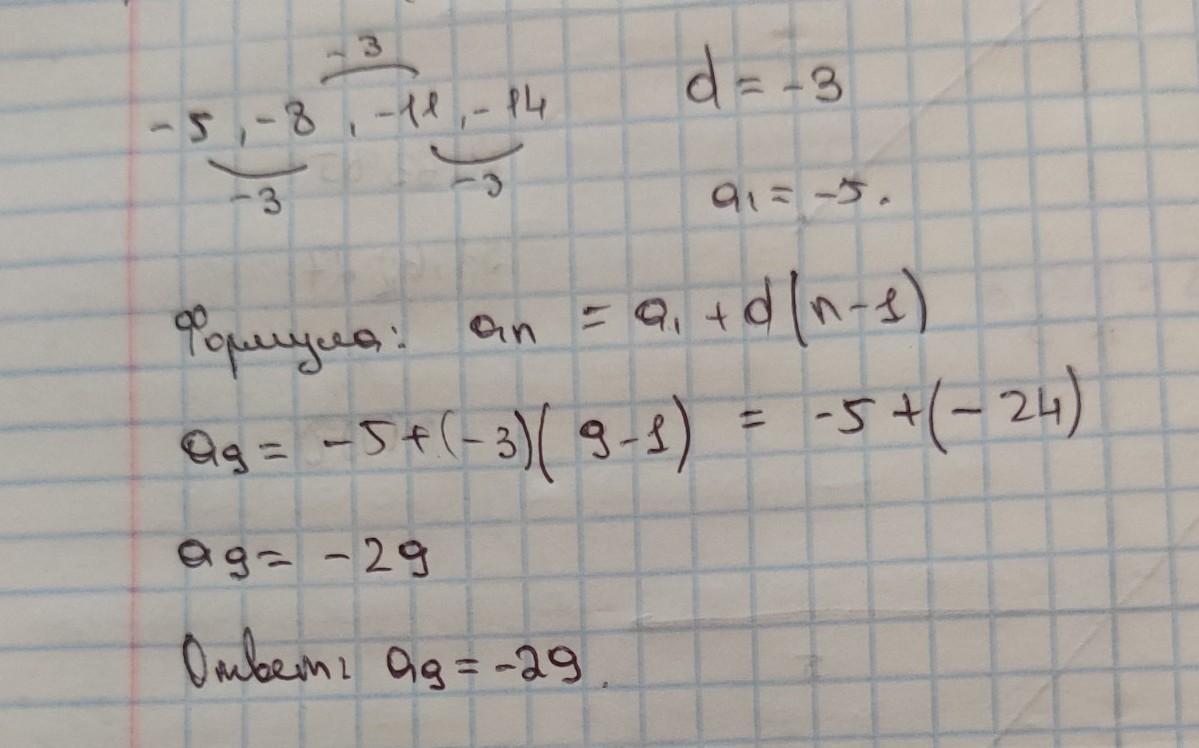 -3
-5, -8, -11, -14
-3 -3
d = -3
a₁ = -5.
Формула: an = a₁ + d(n-1)
a₉ = -5+(-3)(9-1) = -5+(-24)
a₉ = -29
Ответ: a₉ = -29.